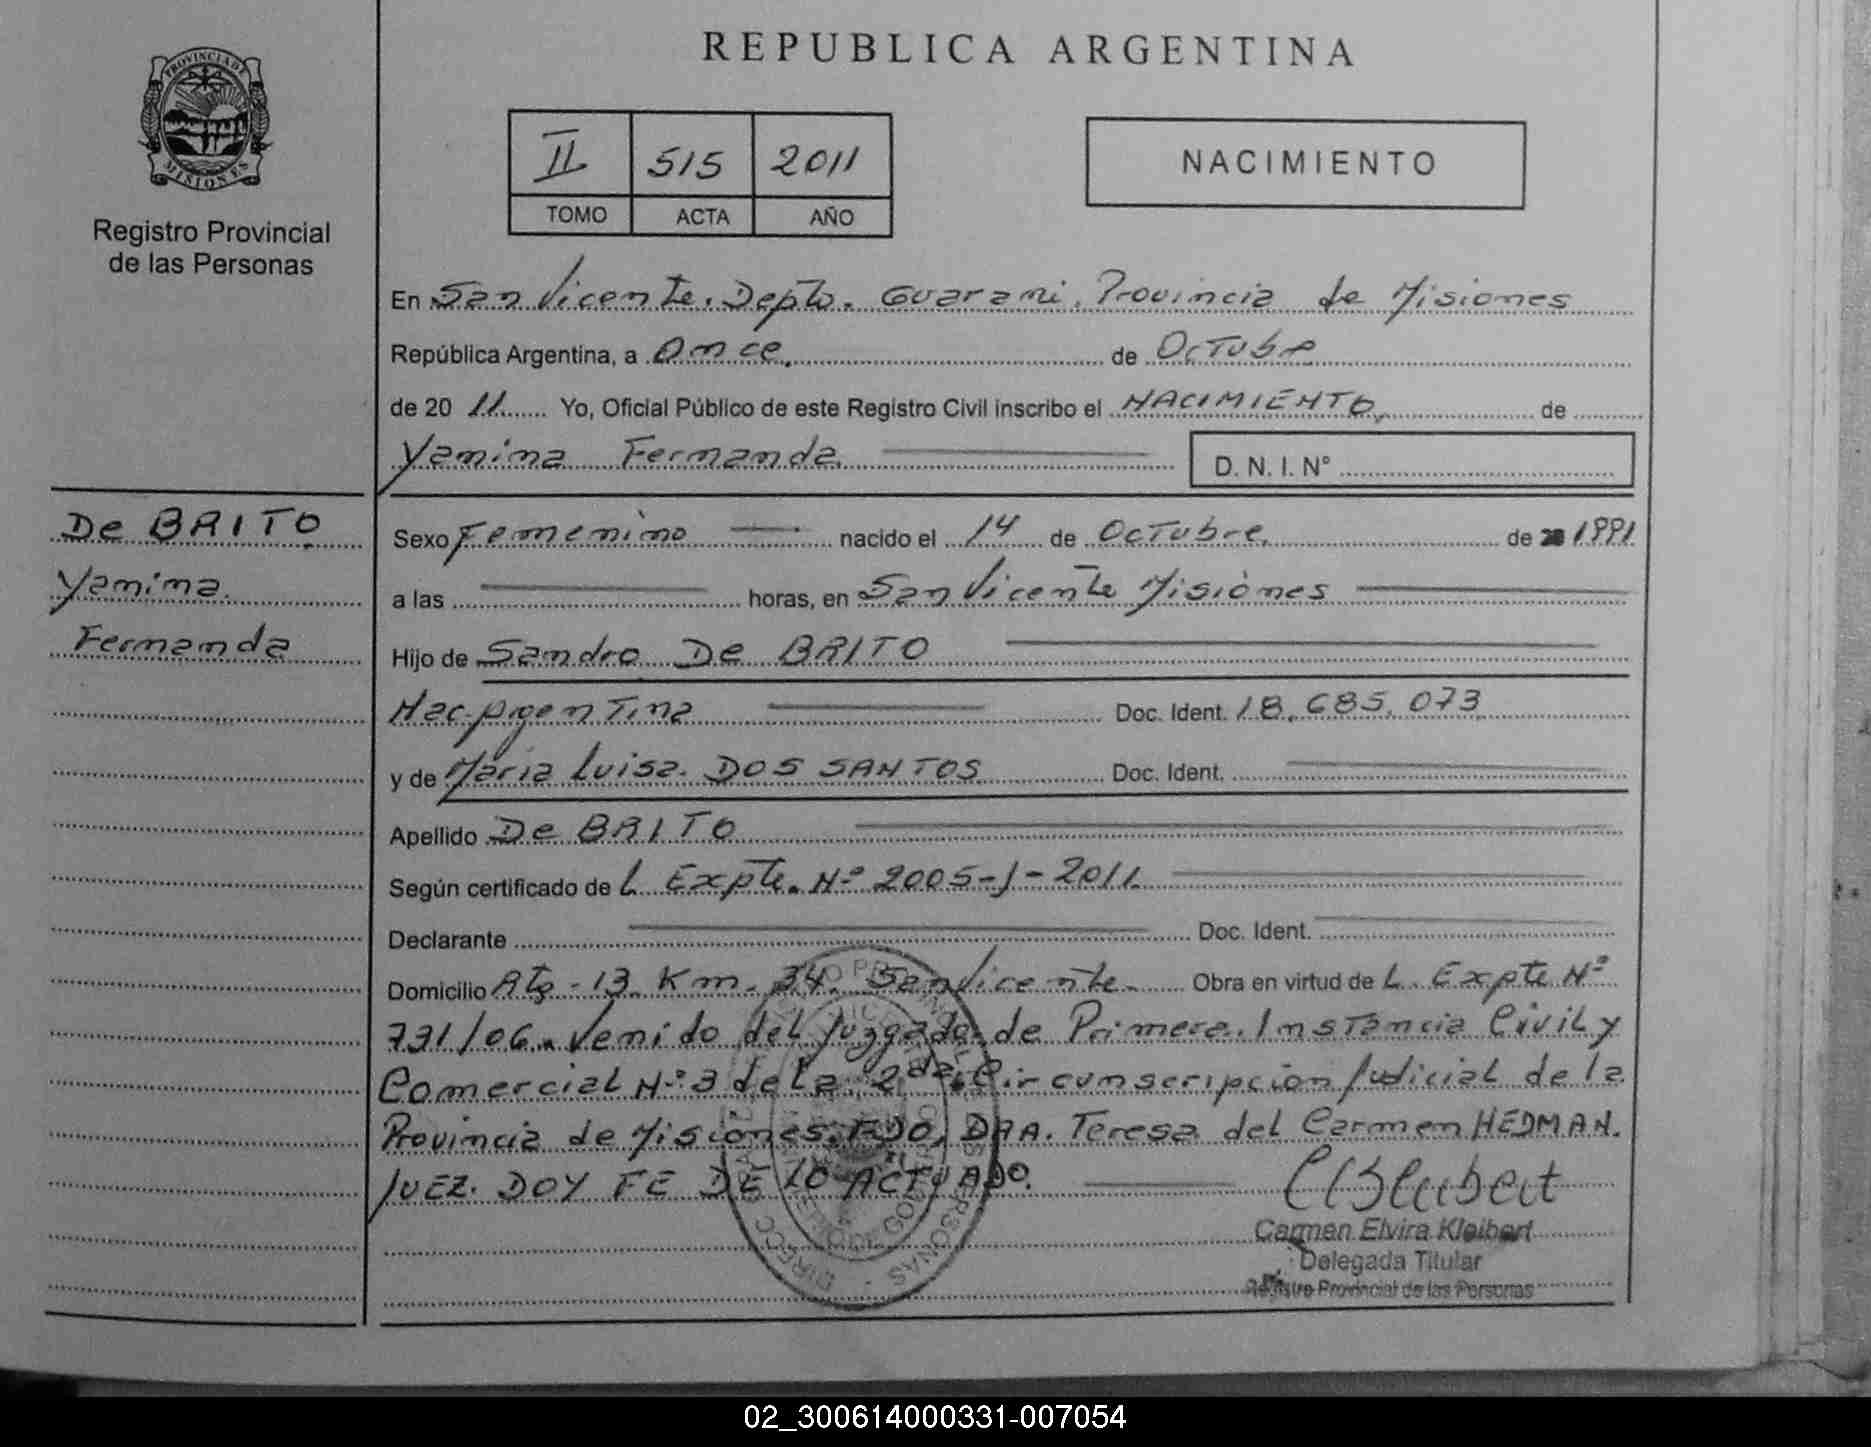 REPUBLICA ARGENTINA
PROVINCIA DE
MISIONES
Registro Provincial
de las Personas
II 515 2011
TOMO ACTA AÑO
NACIMIENTO
En San Vicente. Depto. Guarani. Provincia de Misiones
República Argentina, a Once. de Octubre
de 20 11 Yo, Oficial Público de este Registro Civil inscribo el NACIMIENTO, de
Yamina Fernanda. D. N. I. Nº
De BRITO
Yamina.
Fernanda
Sexo Femenino nacido el 14 de Octubre. de 1991
a las horas, en San Vicente Misiones
Hijo de Sandro De BRITO
Nac. Argentina Doc. Ident. 18.685.073
y de Maria Luisa. DOS SANTOS Doc. Ident.
Apellido De BRITO
Según certificado de L Expte. Nº 2005-J-2011.
Declarante Doc. Ident.
Domicilio Rta - 13 Km. 34. San Vicente. Obra en virtud de L. Expte Nº
731/06. Venido del Juzgado de Primera Instancia Civil y
Comercial Nº 3 de la 2da. Circunscripcion Judicial de la
Provincia de Misiones. FDO. DRA. Teresa del Carmen HEDMAN.
JUEZ. DOY FE DE LO ACTUADO.
Carmen Elvira Kleibert
Delegada Titular
Registro Provincial de las Personas
02_300614000331-007054